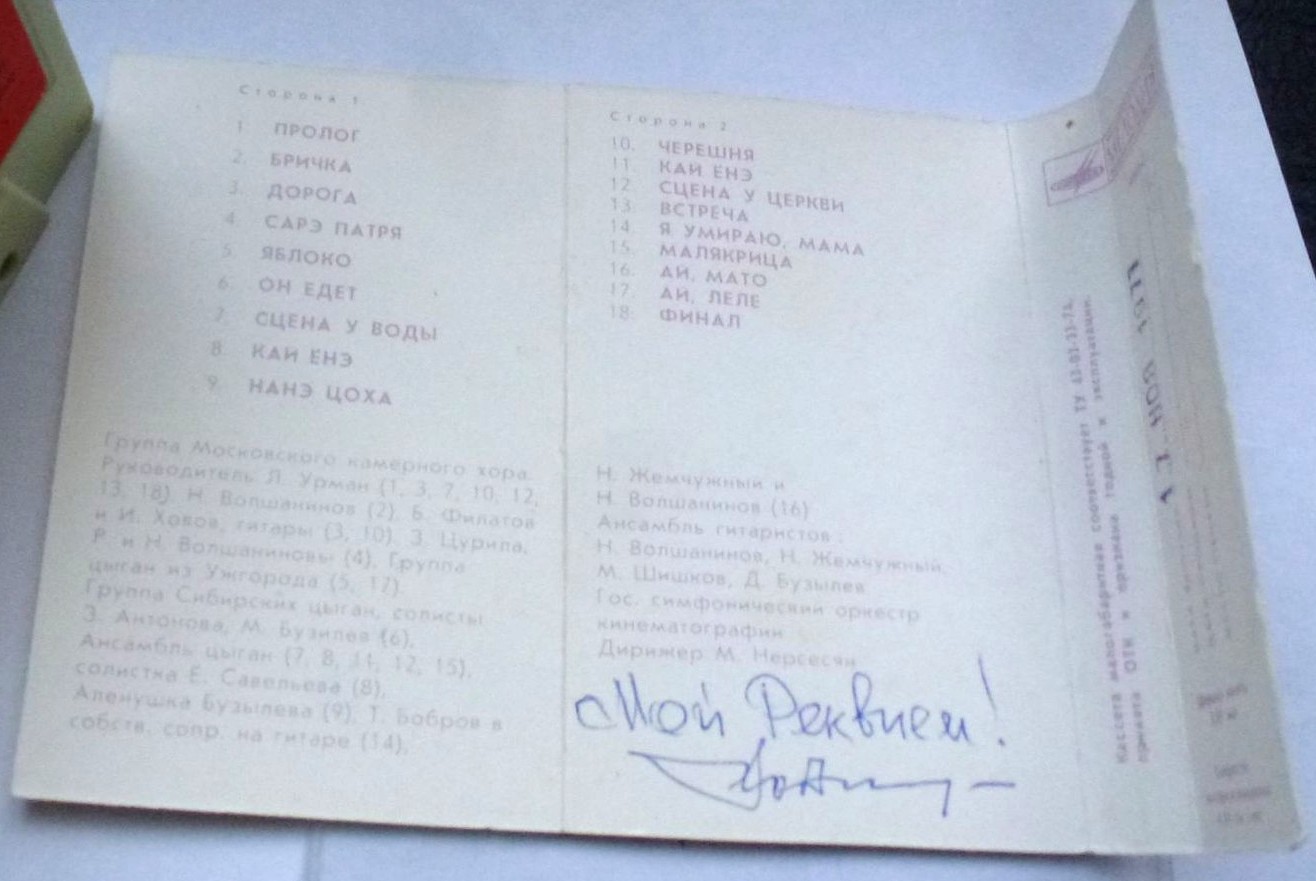 Сторона 1
1. ПРОЛОГ
2. БРИЧКА
3. ДОРОГА
4. САРЭ ПАТРЯ
5. ЯБЛОКО
6. ОН ЕДЕТ
7. СЦЕНА У ВОДЫ
8. КАЙ ЕНЭ
9. НАНЭ ЦОХА
Группа Московского камерного хора.
Руководитель Л. Урман (1, 3, 7, 10, 12,
13, 18). Н. Волшанинов (2). Б. Филатов
и И. Ховов, гитары (3, 10). З. Цурила,
Р. и Н. Волшаниновы (4), Группа
цыган из Ужгорода (5, 17).
Группа Сибирских цыган, солисты
З. Антонова, М. Бузилев (6),
Ансамбль цыган (7, 8, 11, 12, 15),
солистка Е. Савельева (8),
Аленушка Бузылева (9), Т. Бобров в
собств. сопр. на гитаре (14),
Сторона 2
10. ЧЕРЕШНЯ
11. КАЙ ЕНЭ
12. СЦЕНА У ЦЕРКВИ
13. ВСТРЕЧА
14. Я УМИРАЮ, МАМА
15. МАЛЯКРИЦА
16. АЙ, МАТО
17. АЙ, ЛЕЛЕ
18. ФИНАЛ
Н. Жемчужный и
Н. Волшанинов (16)
Ансамбль гитаристов :
Н. Волшанинов, Н. Жемчужный,
М. Шишков, Д. Бузылев
Гос. симфонический оркестр
кинематографии
Дирижер М. Нерсесян
Мой Реквием!
Кассета малогабаритная соответствует ТУ 43-01-11-74,
принята ОТК и признана годной к эксплуатации.